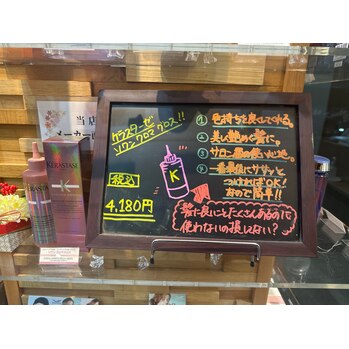 当店
メーカー
KERASTASE
ケラスターゼ
ソワンクロマグロス!!
税込
4,180円
K
① 色持ちを良くしてくれる。
② 美しい艶めく髪に。
③ サロン級の使い心地。
④ 一番最後にササッと
つければOK!
なので簡単!!
髪に良いことたくさんあるのに
使わないの損しない?